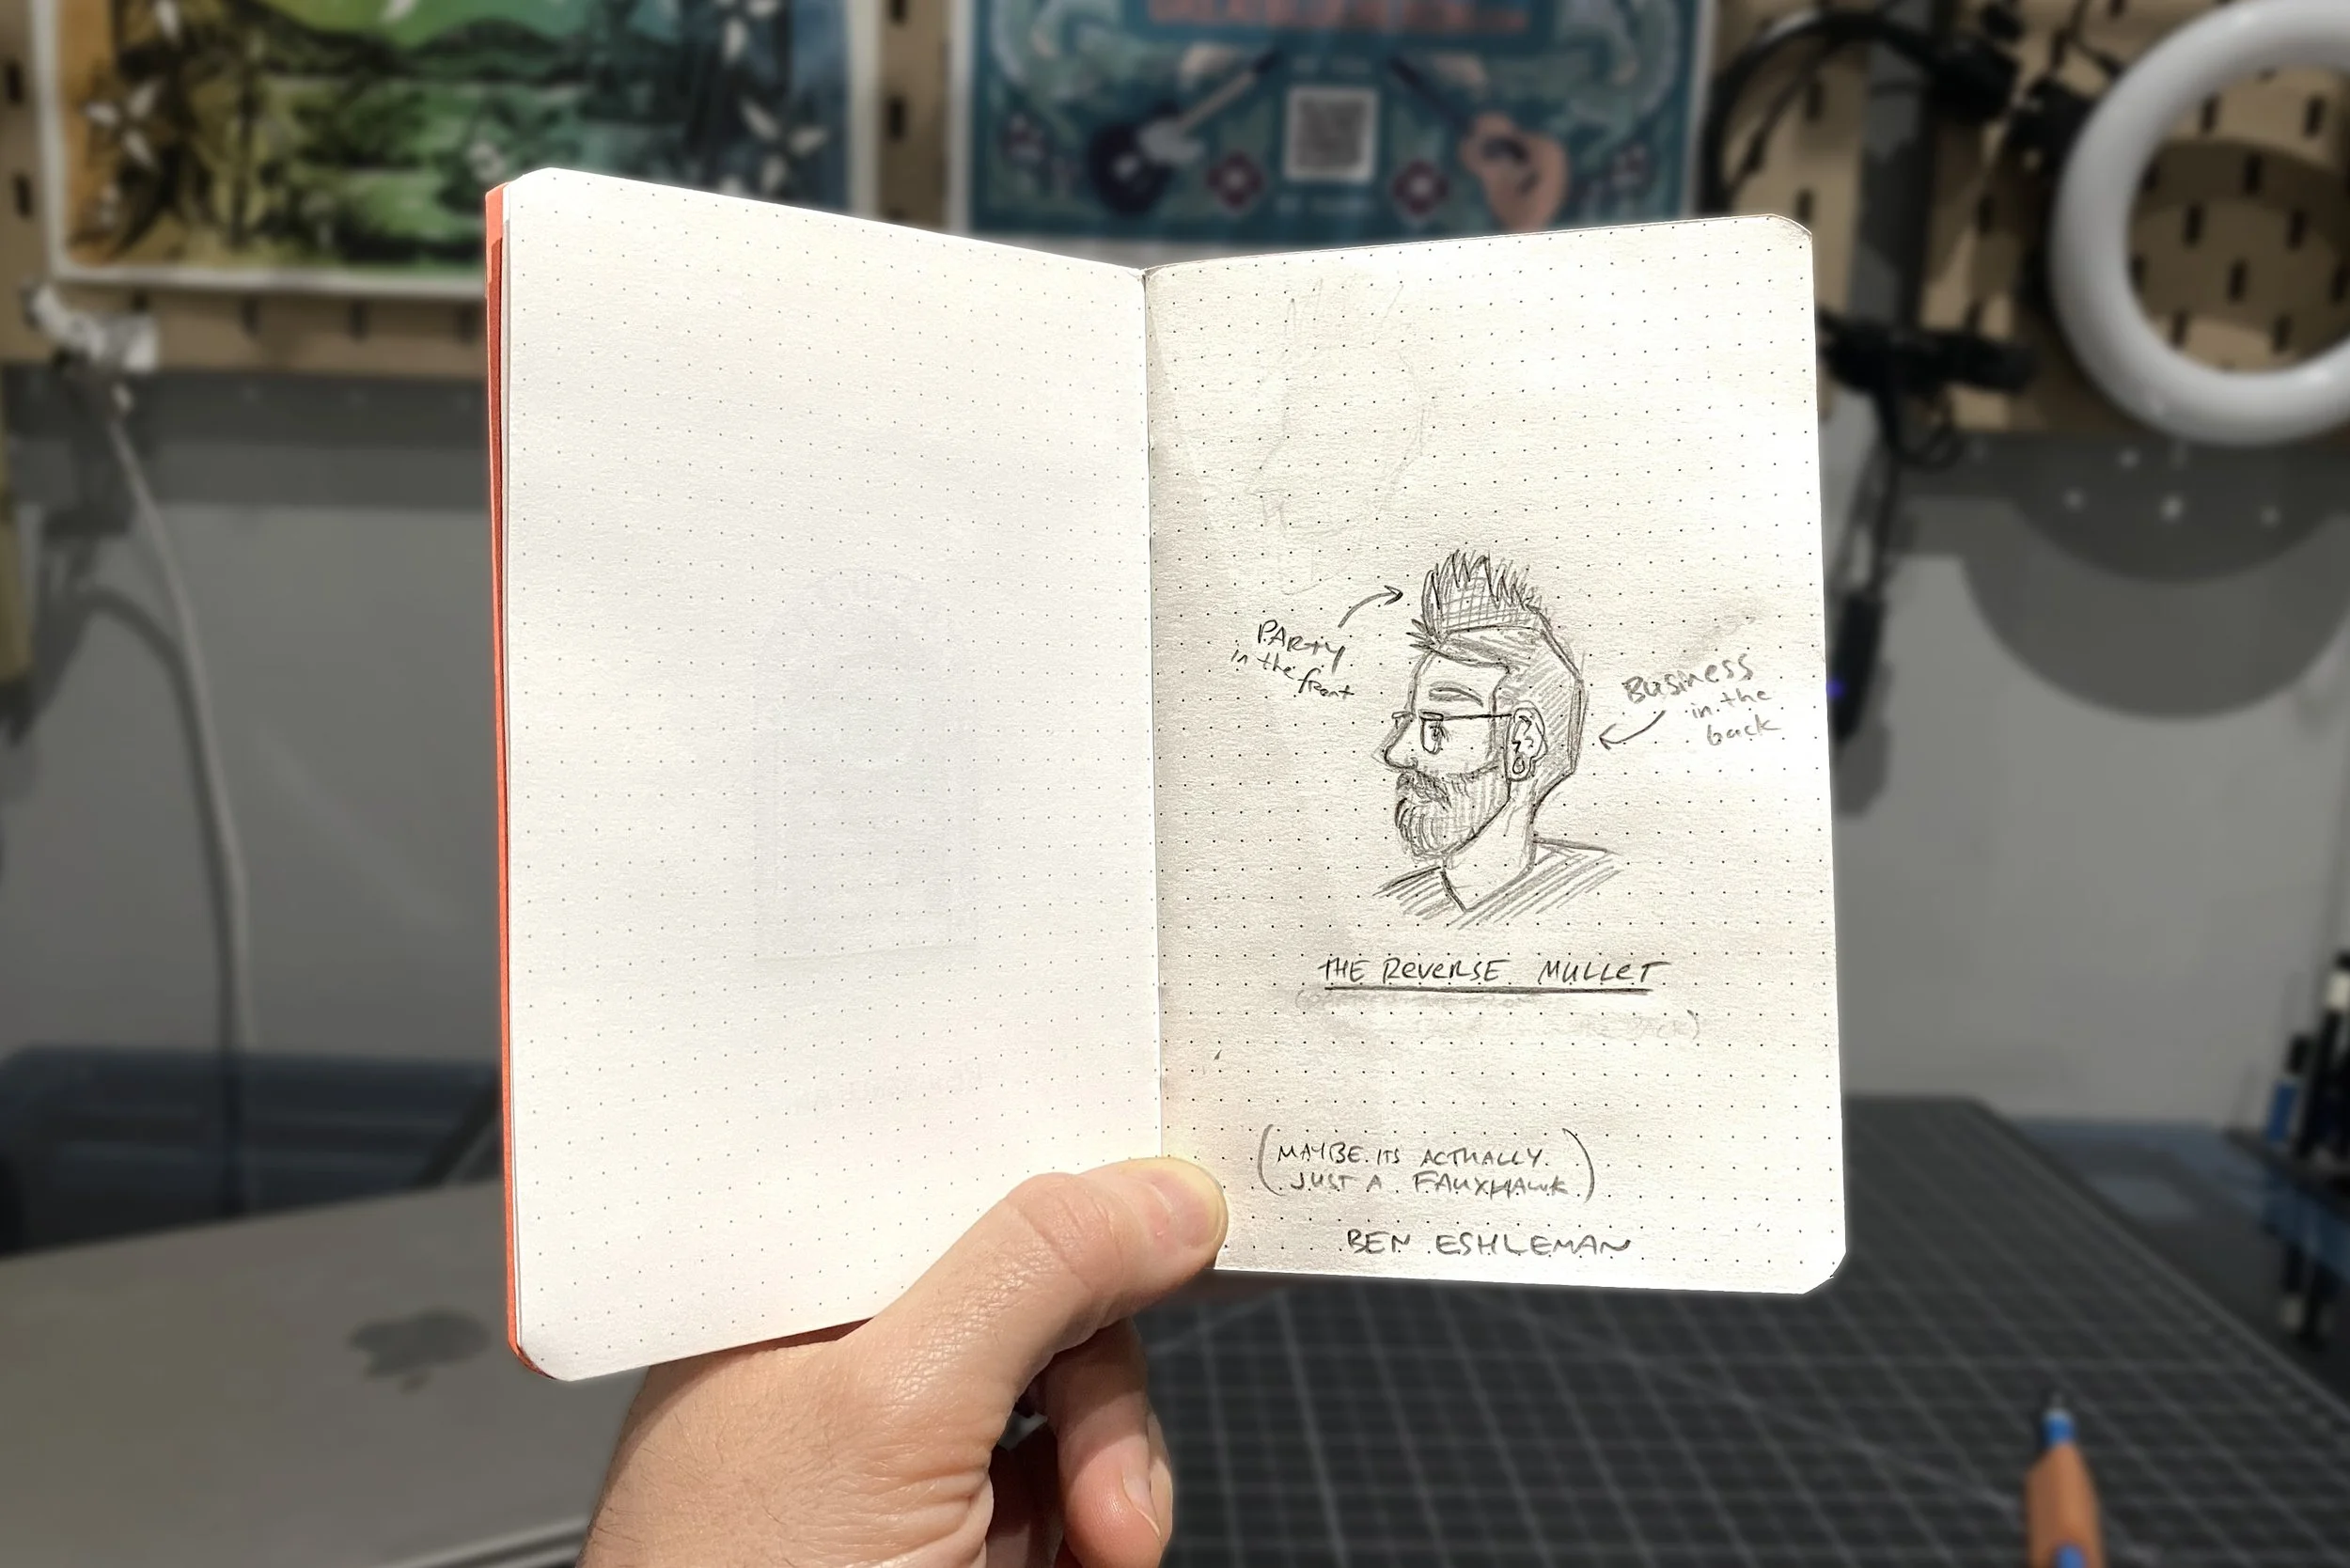 PARTY
in the front
Business
in the
back
THE REVERSE MULLET
(MAYBE ITS ACTUALLY
JUST A FAUXHAWK)
BEN ESHLEMAN